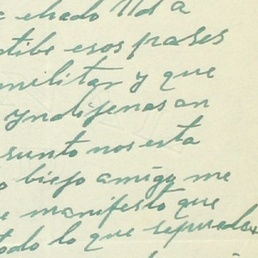 echado Ud a
esos pases
militar y que
Yndijenas an
sunto nos esta
o biejo amigo me
e manifesto que
todo lo que